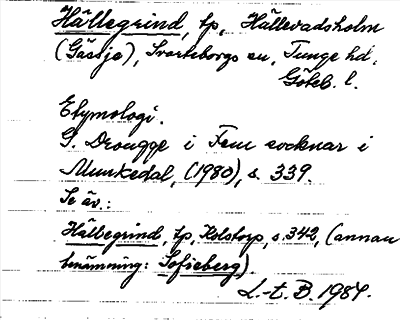 Hällegrind, tp, Hällevadsholm
(Gässje), Svarteborgs sn, Tunge hd,
Göteb. l.
Etymologi.
G. Drougge i Fem socknar i
Munkedal, (1980), s. 339.
Se äv.:
Hällegrind, tp, Kolstorp, s. 342, (annan
benämning: Sofieberg).
L.-t. B. 1984.